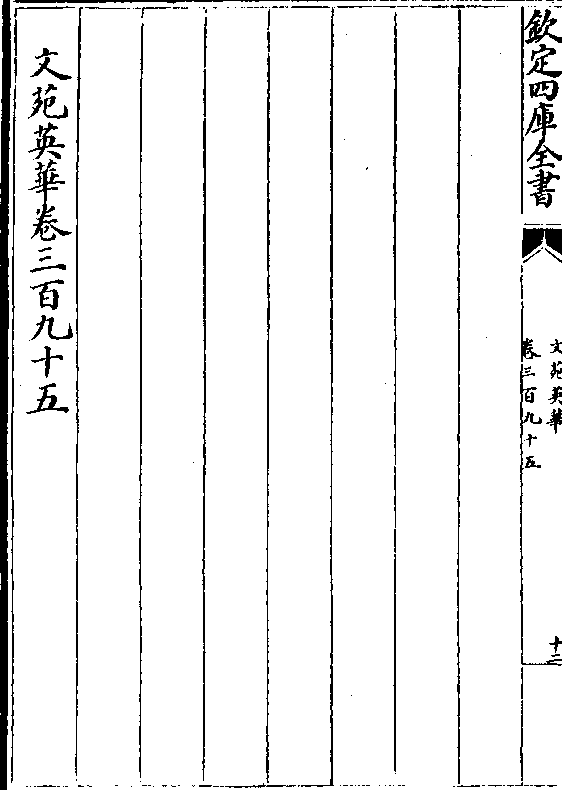 欽定四庫全書
文苑英華
卷三百九十五
十二
文苑英華卷三百九十五